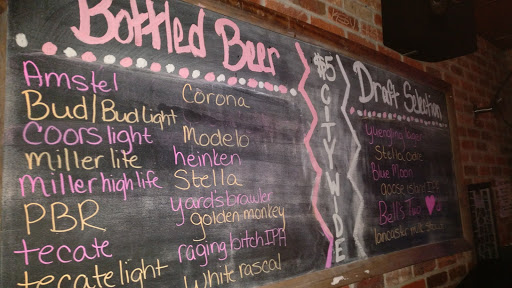 Bottled Beer
Amstel
Bud/Bud light
Coors light
Miller lite
Miller high life
PBR
tecate
tecate light
Corona
Modelo
heinken
Stella
yards brawler
golden monkey
raging bitch IPA
White rascal
$5
CITYWIDE
Draft Selection
yuengling lager
Stella
Blue Moon
goose island IPA
Bell's Two
lancaster milk stout